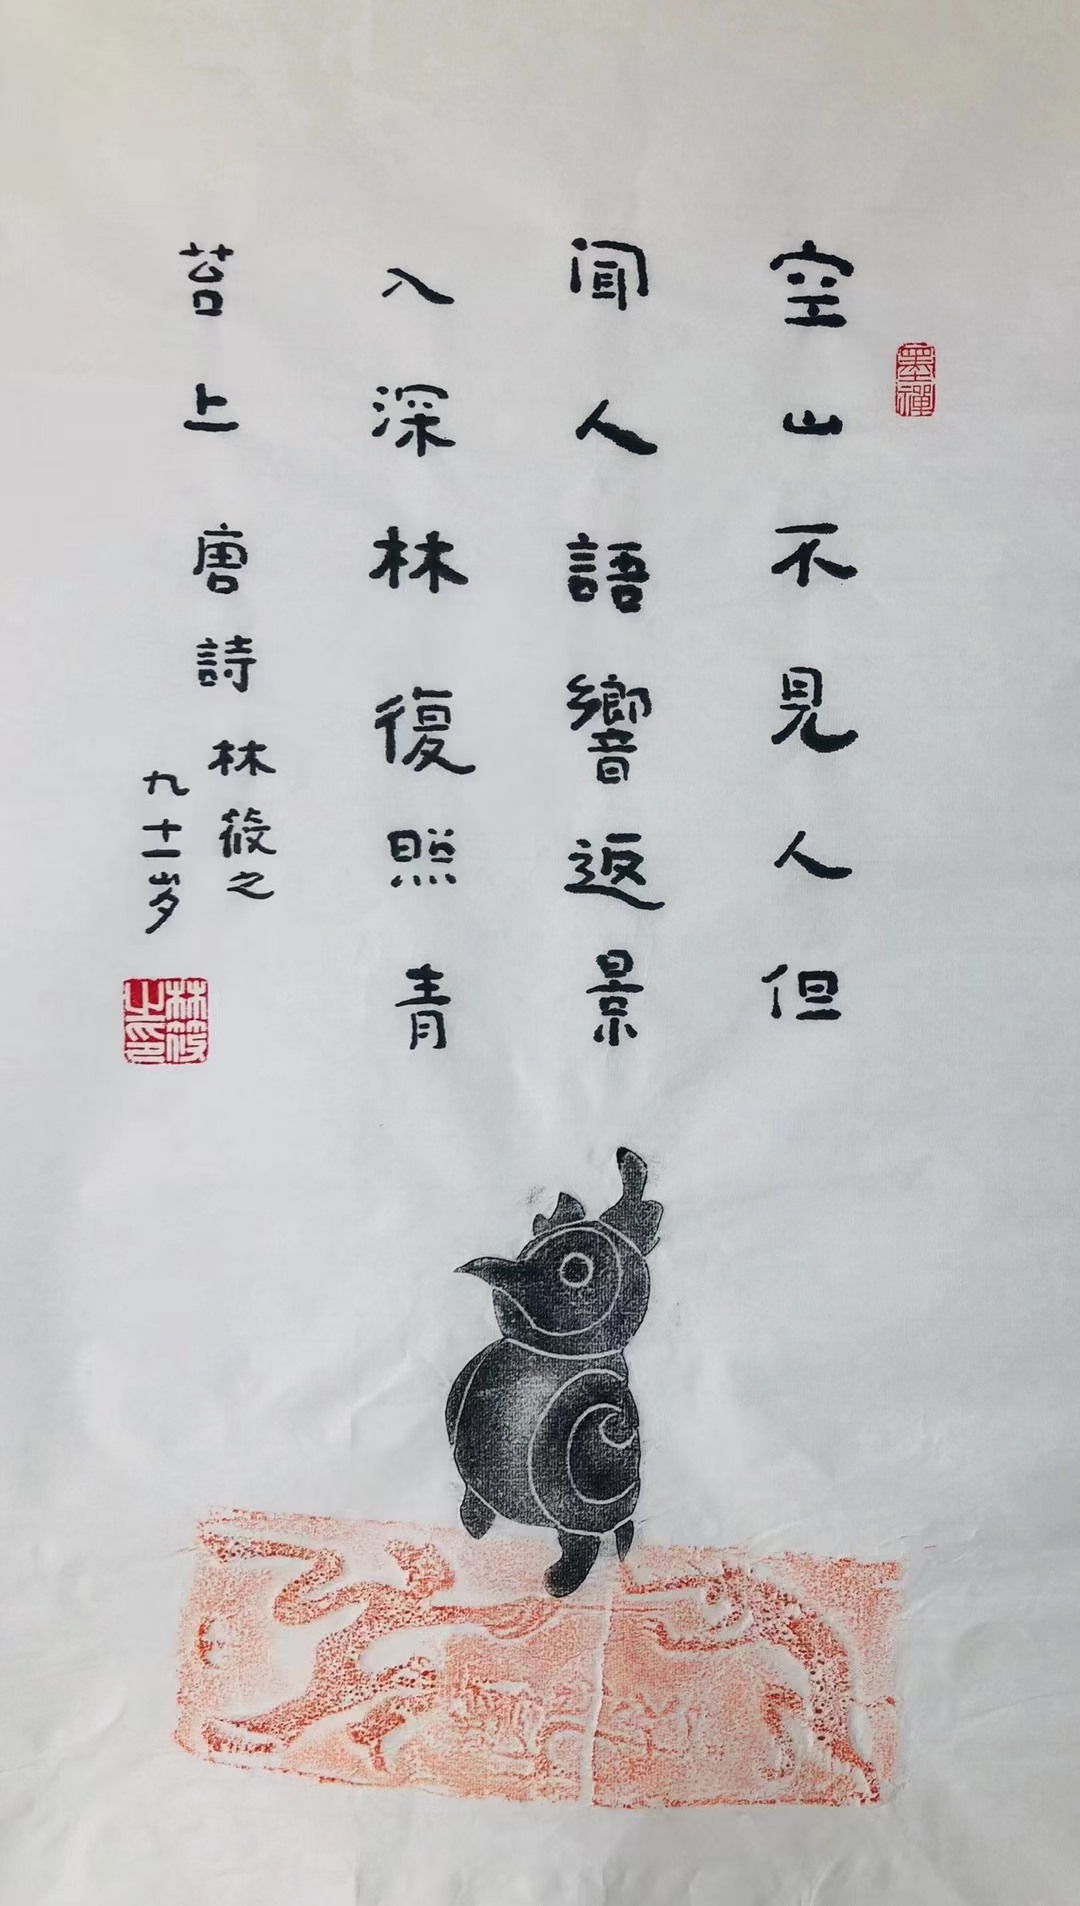 墨禪
空山不見人但
聞人語響返景
入深林復照青
苔上 唐詩 林筱之
九十一岁
林筱之印